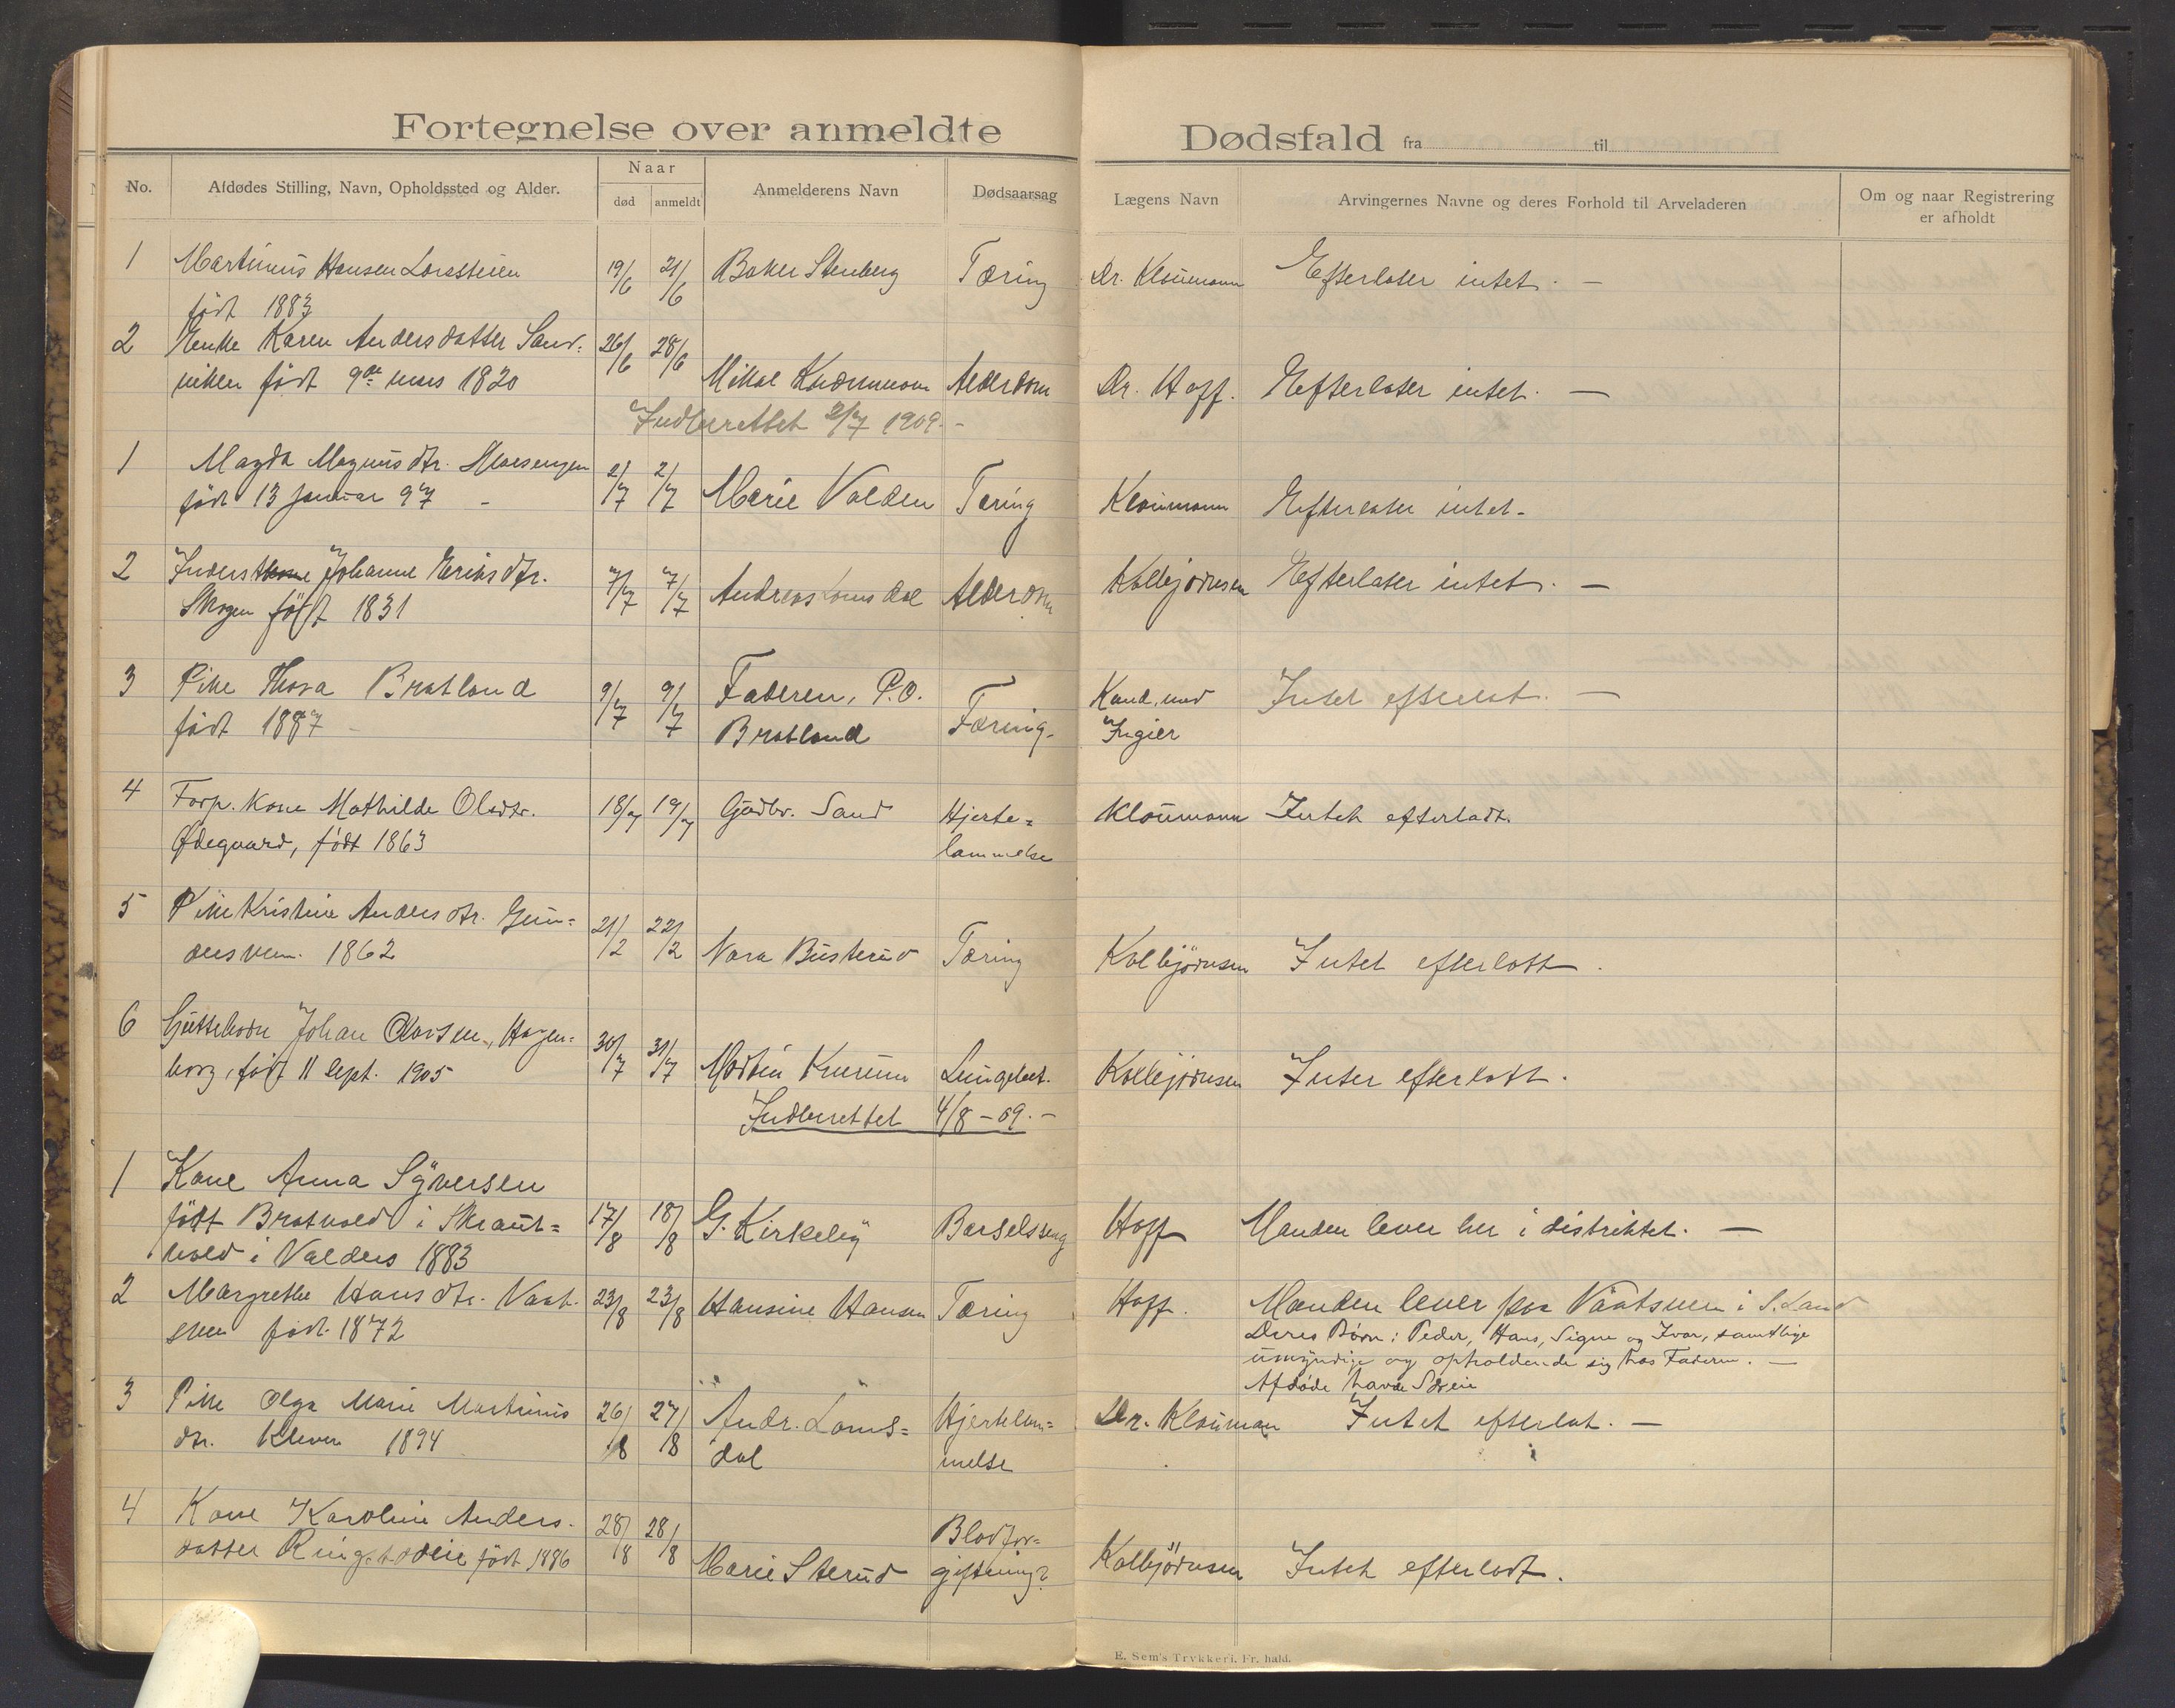 Fortegnelse over anmeldte Dødsfald fra til
No. Afdødes Stilling, Navn, Opholdssted og Alder. Naar død anmeldt Anmelderens Navn Dødsaarsag Lægens Navn Arvingernes Navne og deres Forhold til Arveladeren Om og naar Registrering er afholdt
1 Martinius Hansen 19/6 21/6 Baker Stenberg Tæring Dr. Kloumann Efterlater intet. —
født 1883
2 Enke Karen Andersdatter Sand- 26/6 28/6
viken født 9de mars 1820 Mikal Alderdom Dr. Hoff. Efterlater intet. —
Indberettet 2/7 1909. -
1 Magda Magnusdtr. 2/7 2/7
født 13 januar 97 - Marie Valden Tæring Kloumann Efterlater intet -
2 Inderst Johanne Eriksdtr. 7/7 7/7 Andreas Lomsdal Alderdom Kolbjørnsen Efterlater intet. —
Skogen født 1831
3 Pike Thora Bratland 9/7 9/7 Faderen, P.O. Kand. med Intet efterlat. —
født 1887 - Bratland Tæring. Ingier
4 Forp. kone Mathilde Olsdtr. 18/7 19/7 Gudbr. Sand Hjerte= Kloumann Intet efterladt.
Ødegaard, født 1863 lammelse
5 Pike Kristine Andersdtr. Gun= 21/2 22/2
1862 Nora Busterud Tæring Kolbjørnsen Intet efterlatt.
6 Guttebarn Johan Olavsen, Hagen= 30/7 31/7
borg, født 11 Sept. 1905 Lungebet. Kolbjørnsen Intet efterlatt.
Indberettet 4/8 - 09. -
1 Kone Anna Syversen
født Bratvold i Skraut= 17/8 18/8 G. Kirkeby Barselsseng Hoff Manden lever her i distriktet. —
vold i Valders 1883
2 Margrethe Hansdtr. Vaat- 23/8 23/8 Hansine Hansen Tæring Hoff. Manden lever paa Vaatsveen i S. Land
sveen født 1872 Deres Børn: Peder, Hans, Signe og Ivar, samtlige
umyndige og opholdende sig hos Faderen. —
Afdøde havde Særeie
3 Pike Olga Marie Martinius 26/8 27/8 Andr. Loms= Hjertelam= Dr. Klouman Intet efterlat. —
dtr. Kleven 1894 dal melse
4 Kone Karoline Anders- 28/8 28/8 Blodfor=
datter født 1886 Marie Sterud giftning? Kolbjørnsen Intet efterladt.
E. Sem's Trykkeri. Fr. hald.